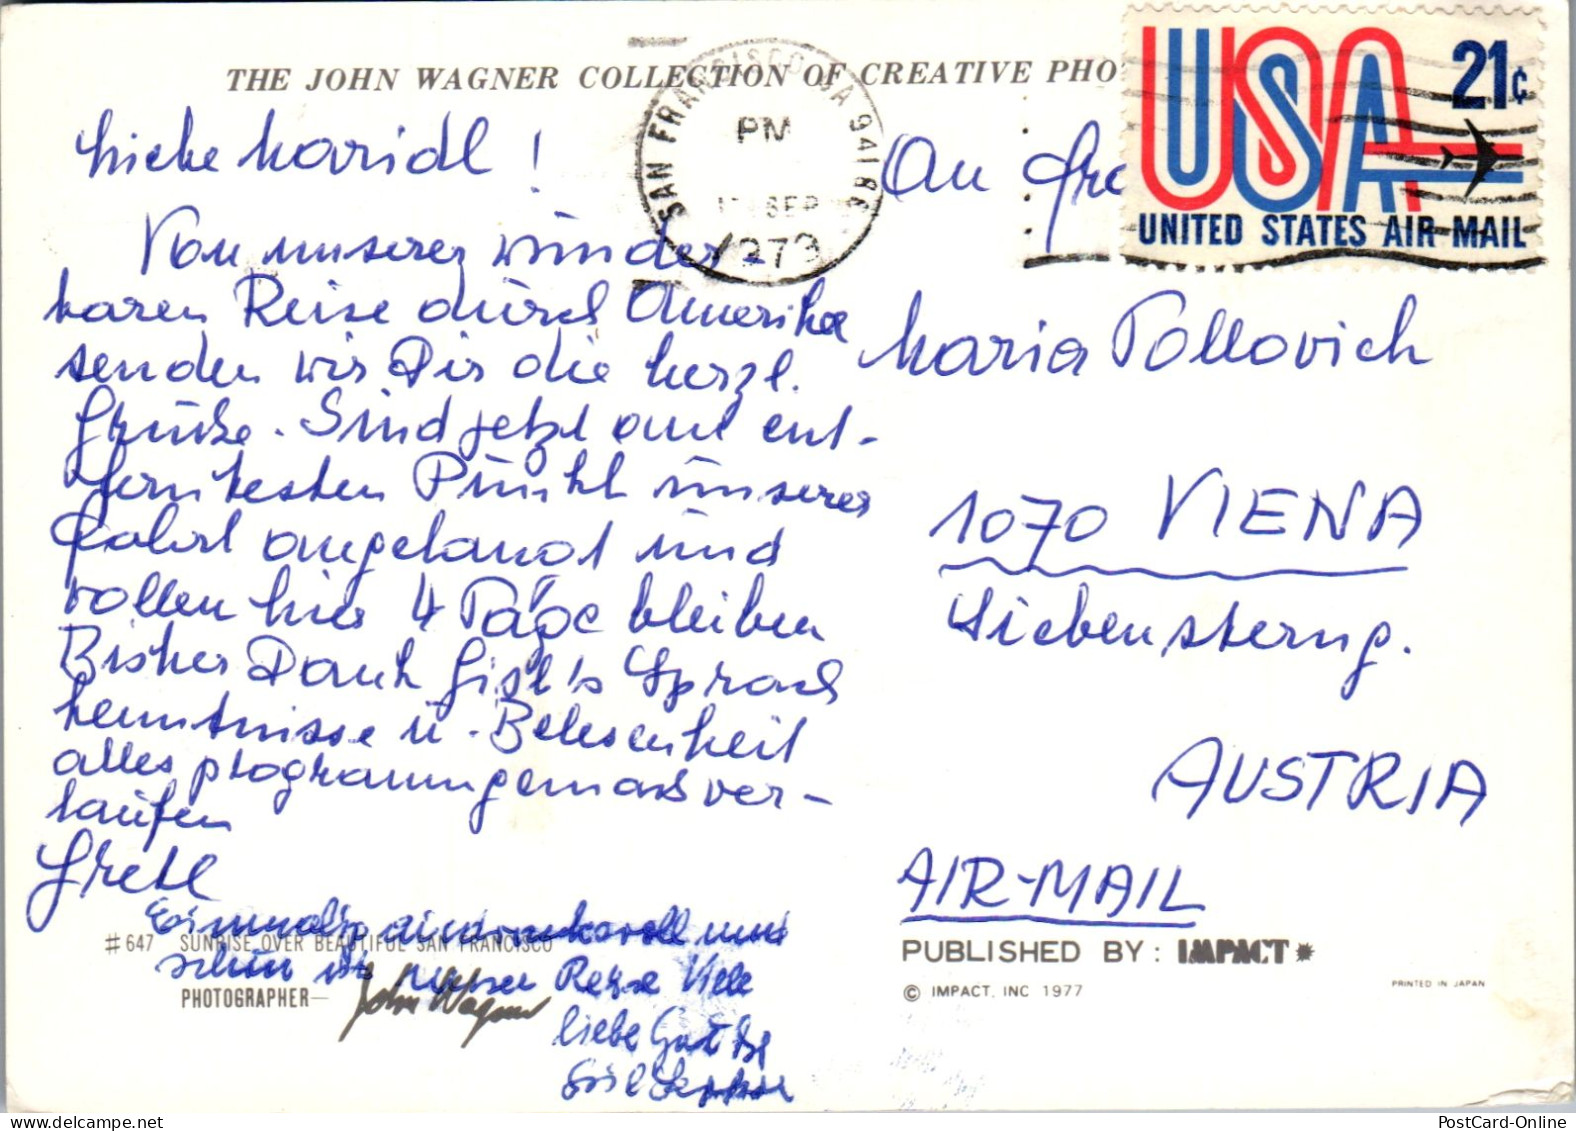 THE JOHN WAGNER COLLECTION OF CREATIVE PHO
SAN FRANCISCO CA 941
PM
SEP
1973
USA 21c
UNITED STATES AIR MAIL
Liebe Maridl!
Von unserer wunder-
baren Reise durch Amerika
senden wir Dir die herzl.
Grüße. Sind jetzt am ent-
ferntesten Punkt unserer
Fahrt angelangt und
wollen hier 4 Tage bleiben
Bisher Dank Gisl's Sprach
kenntnisse u. Belesenheit
alles programmgemäss ver-
laufen
Gretl
Einmalig eindrucksvoll und
schön ist unsere Reise Viele
liebe Grüße
An Fra
Maria Pollovich
1070 VIENA
Siebensterng.
AUSTRIA
AIR-MAIL
#647 SUNRISE OVER BEAUTIFUL SAN FRANCISCO
PHOTOGRAPHER— John Wagner
PUBLISHED BY: IMPACT
© IMPACT, INC 1977
PRINTED IN JAPAN
PostCard-Online